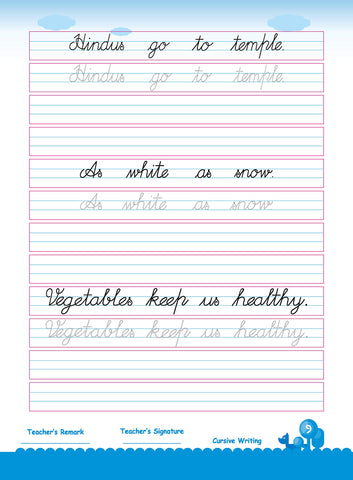 Hindus go to temple.
Hindus go to temple.
As white as snow.
As white as snow
Vegetables keep us healthy.
Vegetables keep us healthy.
Teacher's Remark
Teacher's Signature
Cursive Writing
9